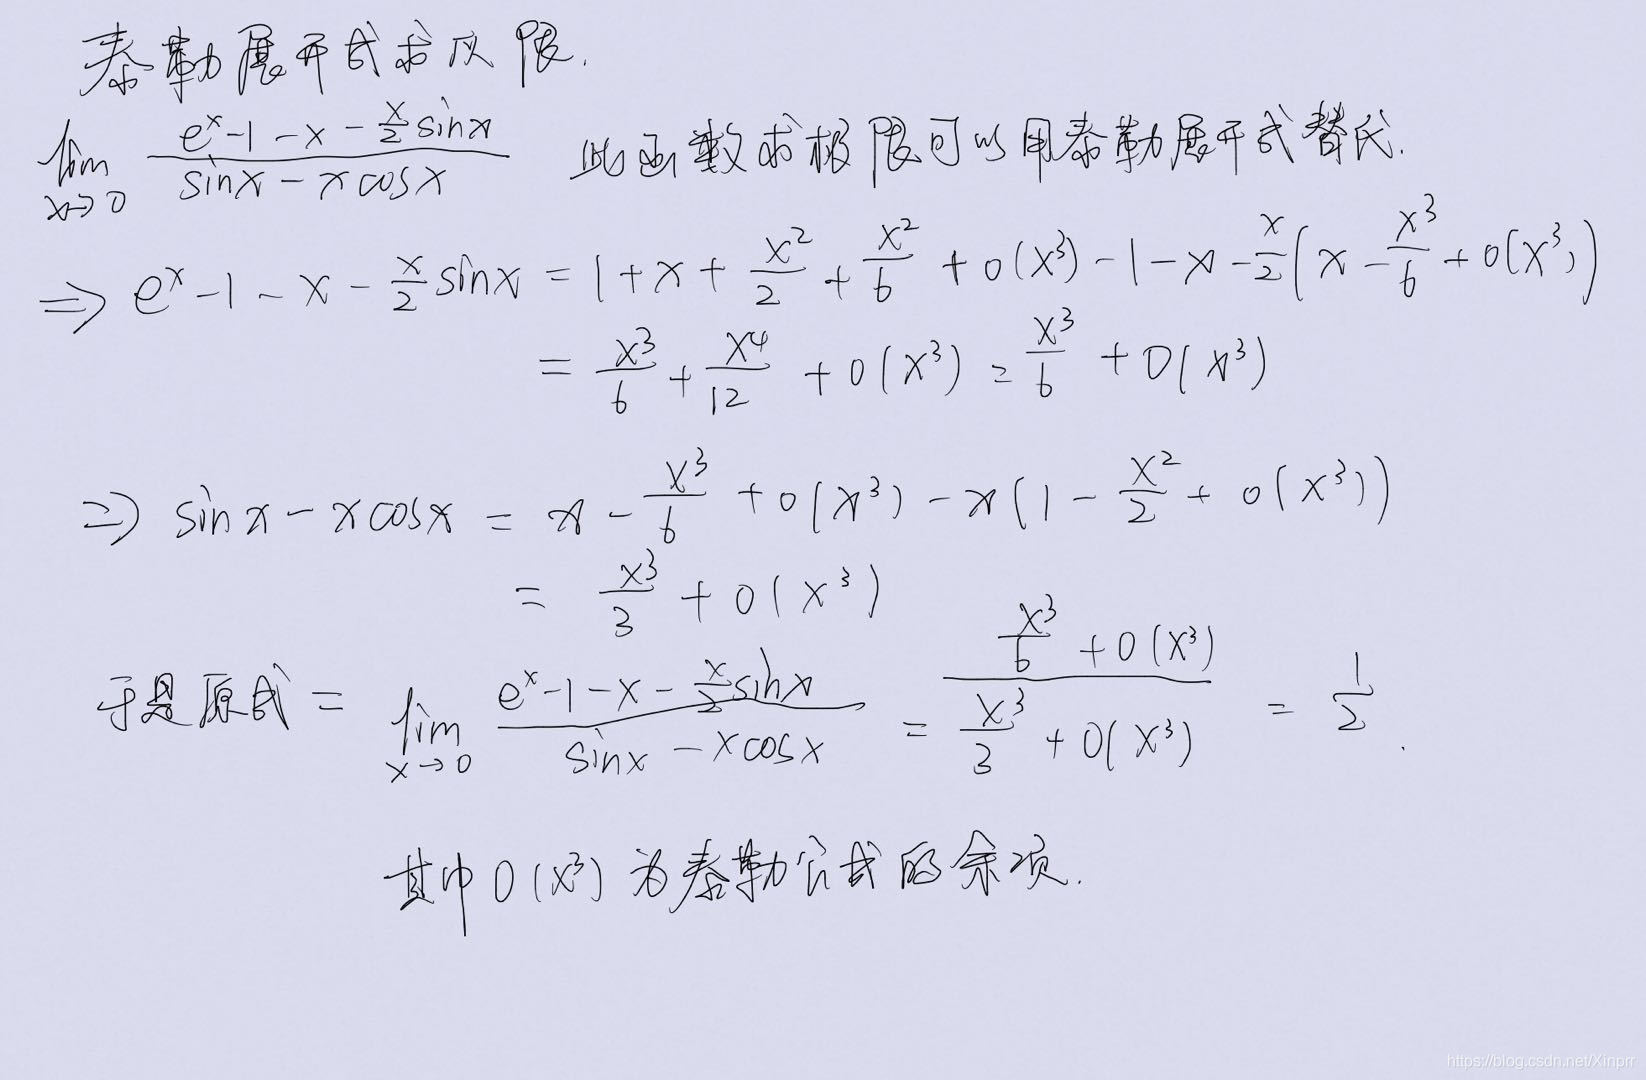 泰勒展开式求极限.
lim x→0 (e^x-1-x-x/2 sinx)/(sinx-xcosx) 此函数求极限可以用泰勒展开式替代.
⇒ e^x-1-x-x/2 sinx = 1+x+x^2/2+x^2/6+o(x^3)-1-x-x/2(x-x^3/6+o(x^3))
= x^3/6+x^4/12+o(x^3) = x^3/6+o(x^3)
⇒ sinx-xcosx = x-x^3/6+o(x^3)-x(1-x^2/2+o(x^3))
= x^3/3+o(x^3)
于是原式 = lim x→0 (e^x-1-x-x/2 sinx)/(sinx-xcosx) = (x^3/6+o(x^3))/(x^3/3+o(x^3)) = 1/2.
其中 o(x^3) 为泰勒公式的余项.
https://blog.csdn.net/Xinprr